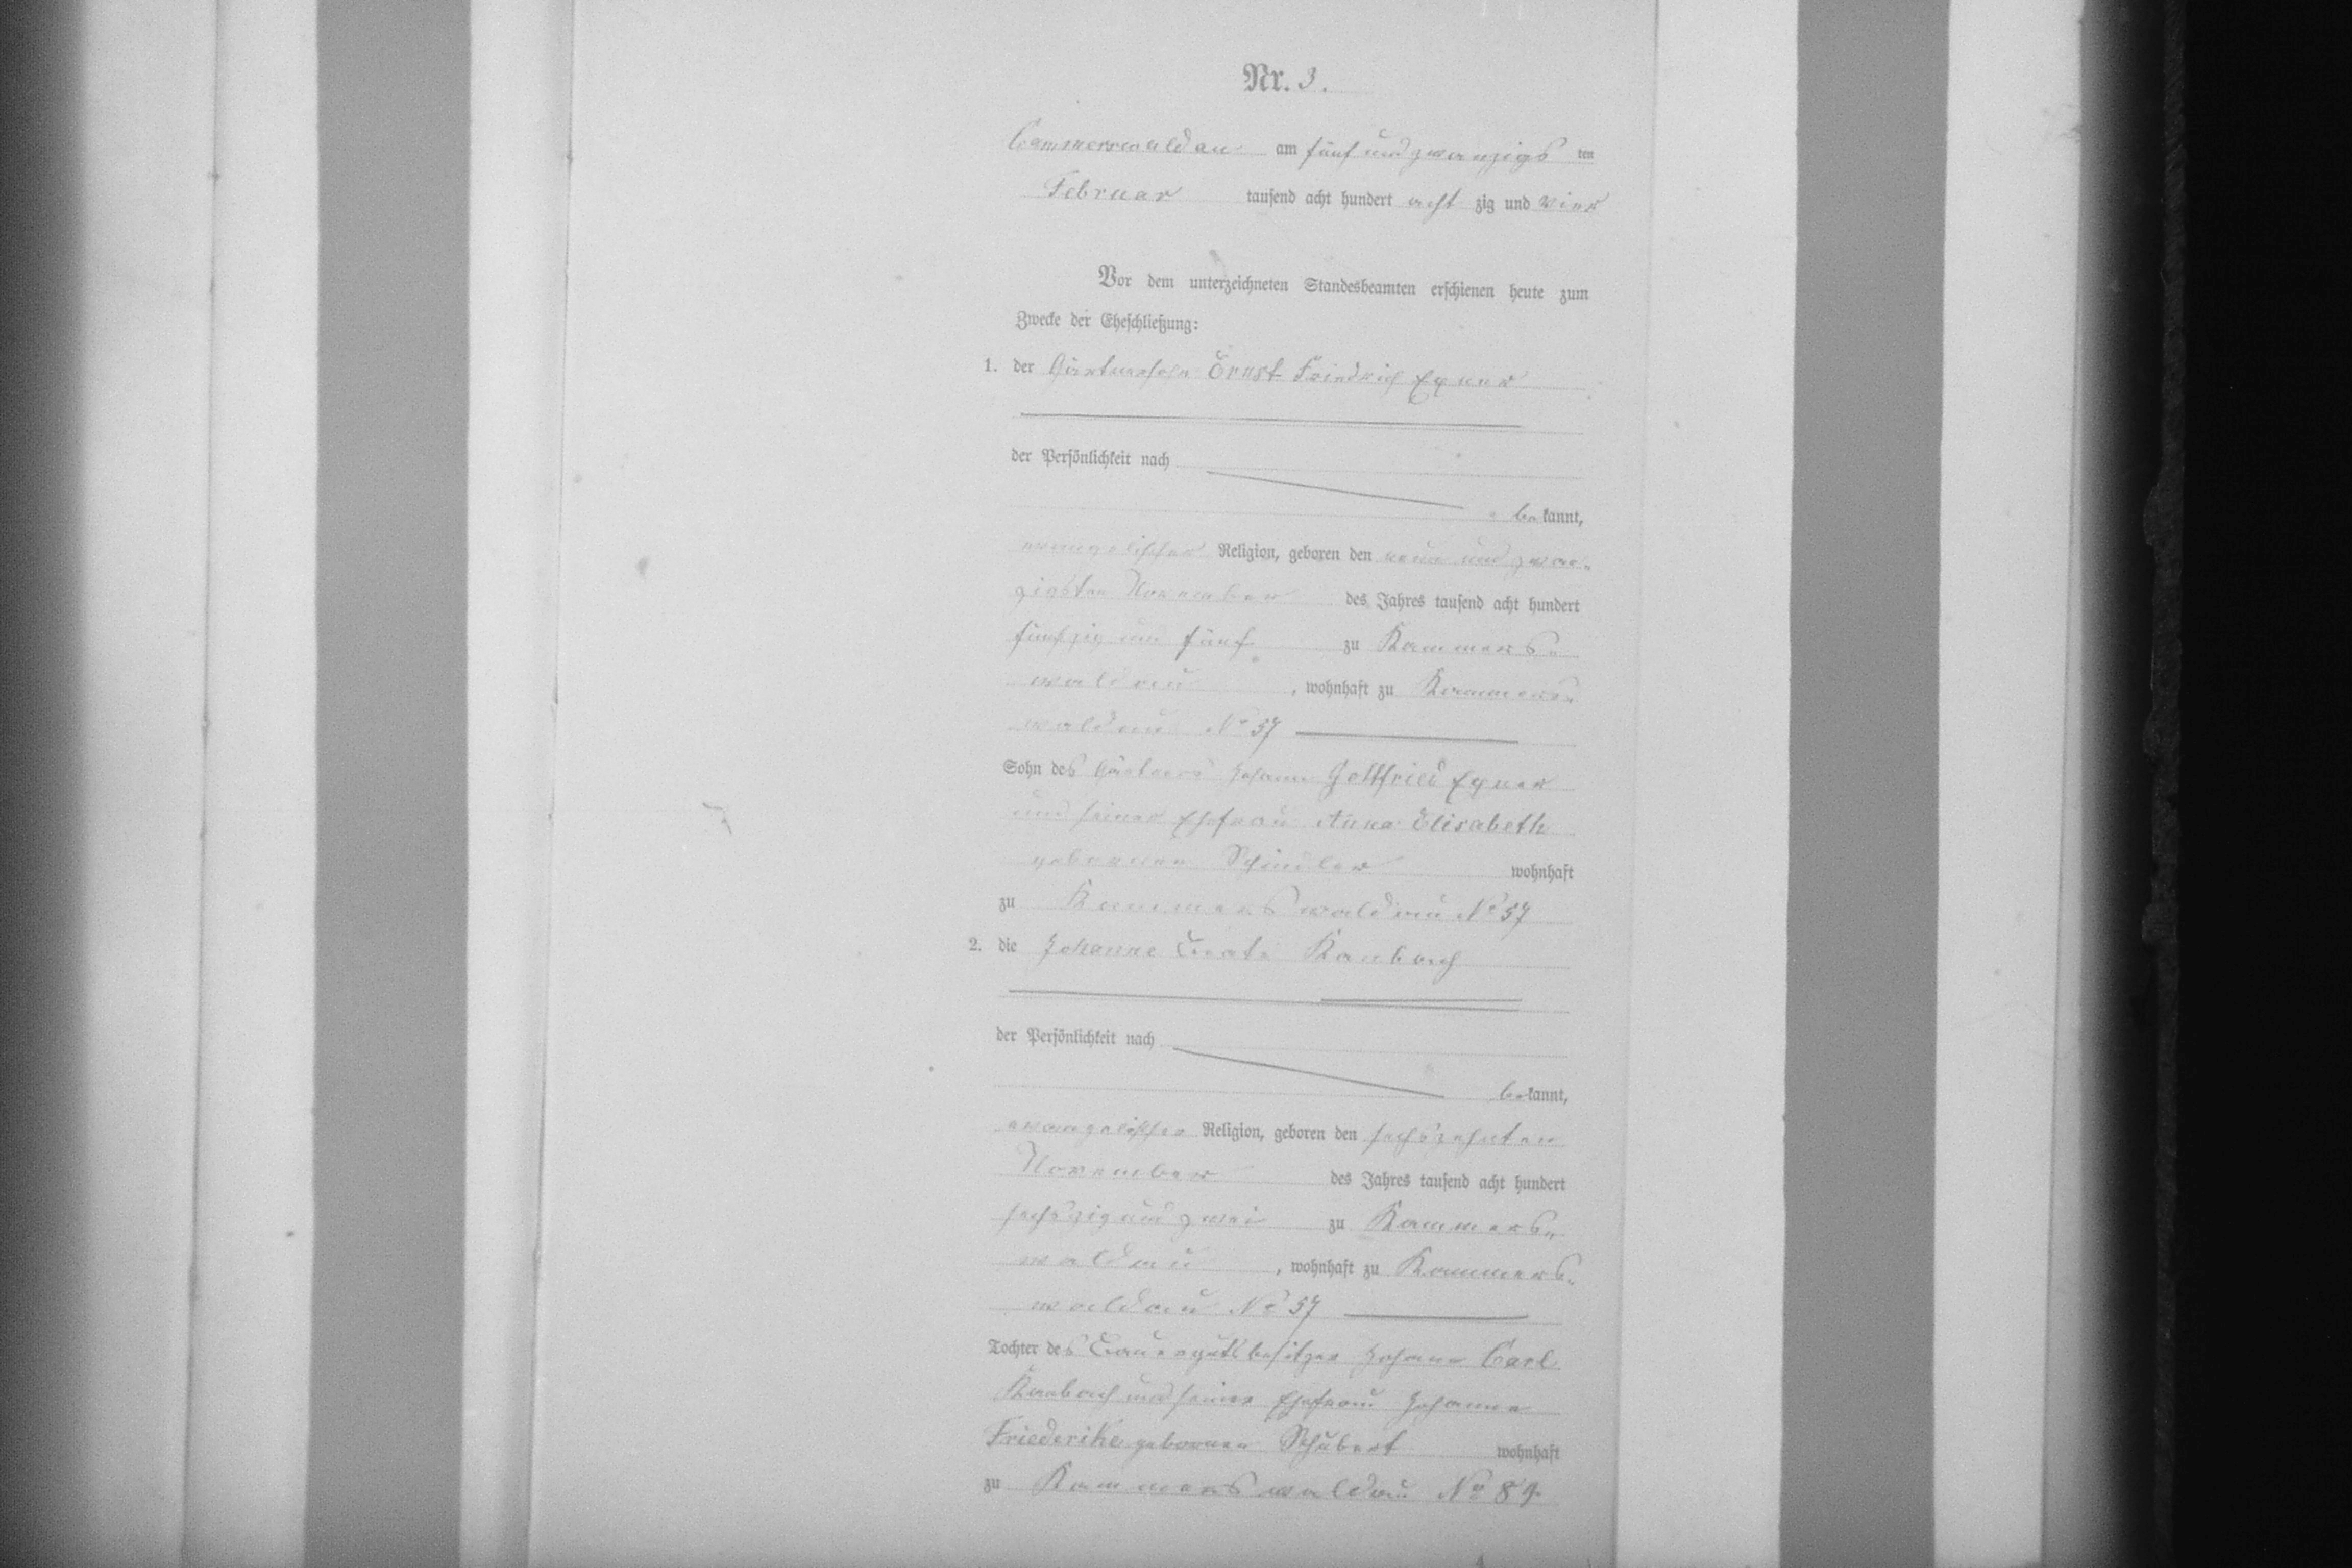 Nr. 3.
Cammerswaldau am fünf und zwanzigs ten
Februar tausend acht hundert acht zig und vier
Vor dem unterzeichneten Standesbeamten erschienen heute zum
Zwecke der Eheschließung:
1. der Gärtnersohn Ernst Friedrich Exner
der Persönlichkeit nach
be kannt,
evangelischer Religion, geboren den neun und zwan-
zigsten November des Jahres tausend acht hundert
fünfzig und fünf zu Kammers-
waldau, wohnhaft zu Kammers-
waldau No 57
Sohn des Gärtners Johann Gottfried Exner
und seiner Ehefrau Anna Elisabeth
geborenen Schindler wohnhaft
zu Kammerswaldau No 57
2. die Johanne Beate Kambach
der Persönlichkeit nach
be kannt,
evangelischer Religion, geboren den sechszehnten
November des Jahres tausend acht hundert
sechszig und zwei zu Kammers-
waldau, wohnhaft zu Kammers-
waldau No 57
Tochter des Bauergutsbesitzer Johann Carl
Kambach und seiner Ehefrau Johanna
Friederike geborenen Schubert wohnhaft
zu Kammerswaldau No